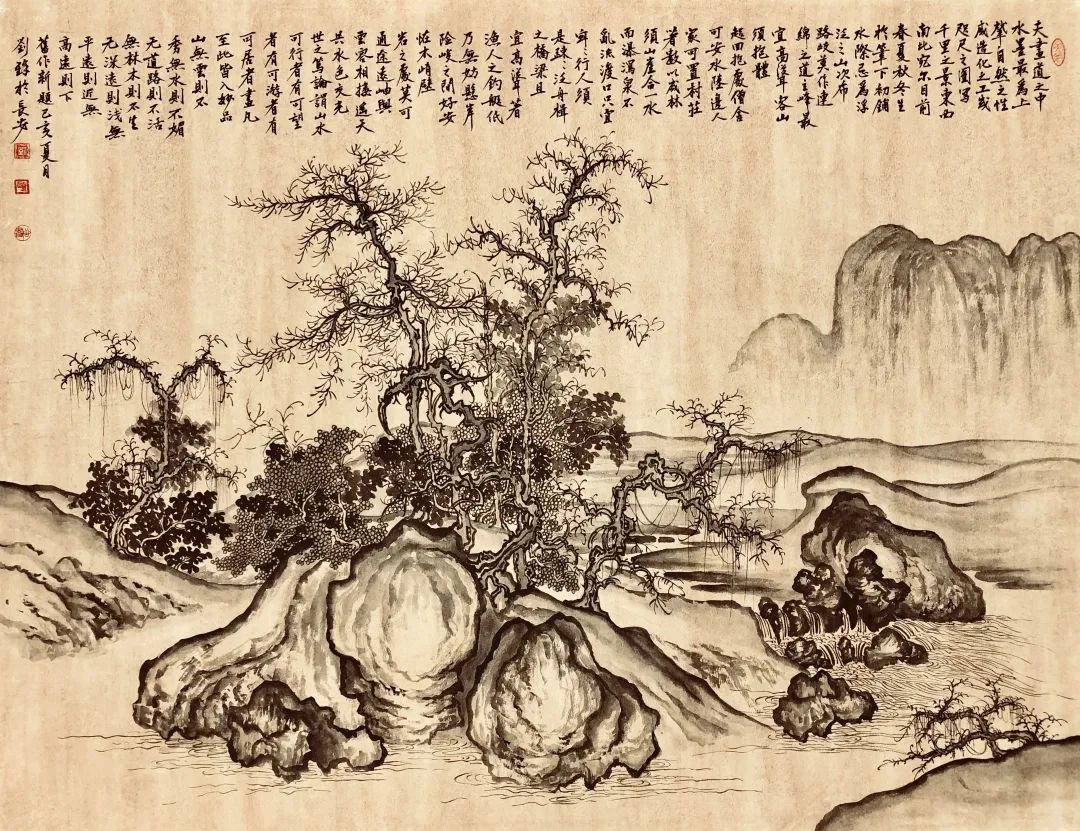 夫畫道之中
水墨最為上
肇自然之性
成造化之工或
咫尺之圖寫
千里之景東西
南北宛尔目前
春夏秋冬生
於筆下初鋪
水際忌為浮
泛之山次布
路岐莫作連
綿之道主峰最
宜高聳客山
須抱體
廻抱處僧舍
可安水陸邊人
家可置村莊
著數以成林
須山崖合一水
而瀑瀉泉不
亂流渡口只宜
行人須
是疎泛舟楫
之橋梁且
宜高聳著
漁人之釣艇低
乃無妨懸岸
險岐之間好安
怪木峭壁
岩之嚴莫可
通途遠岫與
雲容相接遙天
共水色交光
世之篤論謂山水
可行者有可望
者有可游者有
可居者畫凡
至此皆入妙品
山無雲則不
秀無水則不媚
无道路則不活
無林木則不生
无深遠則浅無
平遠則近無
高遠則下
舊作新題乙亥夏月
劉錄於長安